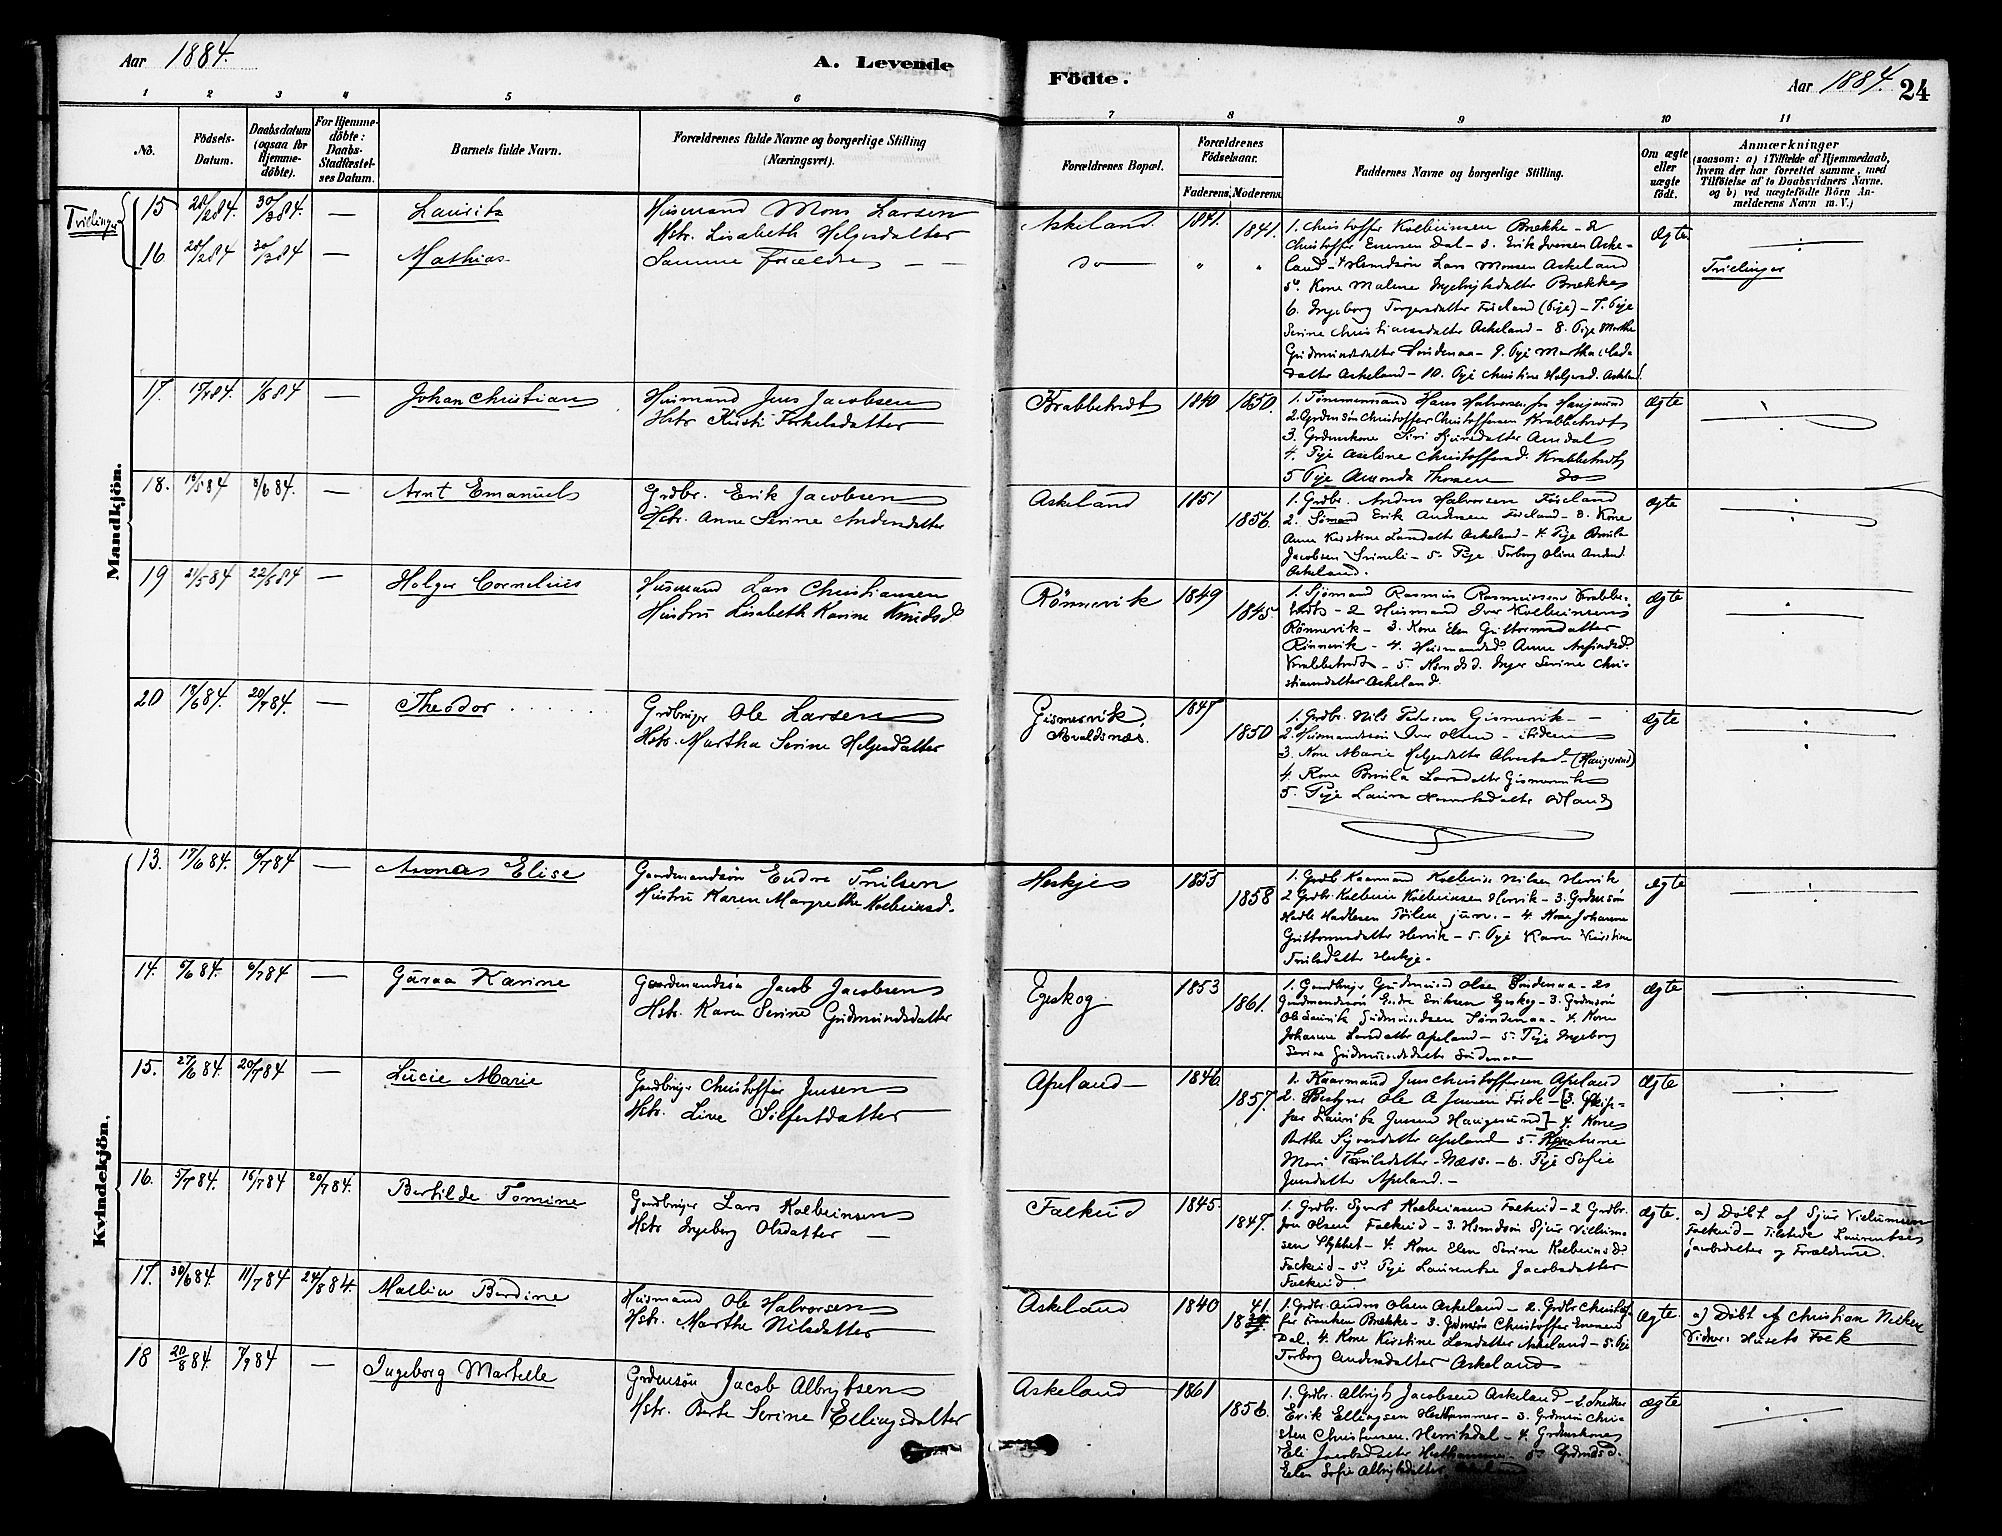 Aar 1884.
A. Levende
Födte.
Aar 1884.
24
1 2 3 4 5 6 7 8 9 10 11
No.
Födsels-
Datum.
Daabsdatum
(ogsaa for
Hjemme-
döbte).
For Hjemme-
döbte:
Daabs-
Stadfæstel-
ses Datum.
Barnets fulde Navn.
Forældrenes fulde Navne og borgerlige Stilling
(Næringsvei).
Forældrenes Bopæl.
Forældrenes
Födselsaar.
Faderens. Moderens.
Faddernes Navne og borgerlige Stilling.
Om ægte
eller
uægte
födt.
Anmærkninger
(saasom: a) i Tilfælde af Hjemmedaab,
hvem der har forrettet samme, med
Tilföielse af to Daabsvidners Navne.
og b) ved uægtefödte Börn An-
melderens Navn m. V.)
Mandkjön.
15 28/2 84. 30/3 84. — Lauritz
Husmand Mons Larsen
Hstr. Lisabeth Helgesdatter
Askeland. 1841. 1841.
1. Christoffer Kolbeinsen Brække - 2
Christoffer Enersen Dal - 3. Erik Iversen Aske-
land - 4 Hsmdsön Lars Monsen Askeland
5. Kone Malene Ingebrigtsdatter Brække
6. Ingeborg Torgersdatter (Pige) - 7. Pige
Serine Christiansdatter Askeland - 8. Pige Marthe
Gudmundsdatter Söndenaa - 9. Pige Martha
datter Askeland - 10. Pige Christine Helgesd. Askland.
Ægte
16 28/2 84 30/3 84 — Mathias
Samme Forældre — —
do " "
Tvillinger
17. 84. 84 — Johan Christian
Husmand Jens Jacobsen
Hstr Kirsti Torkelsdatter
Krabbetvedt 1840 1850.
1. Tömmermand Hans Halvorsen fra Haugesund
2. Grdmdsön Christoffer Christoffersen Krabbetvedt
3. Grdmkone Siri Sjursdatter Amdal
4. Pige Aseline Christoffersd. Krabbetvedt
5 Pige Amanda Thomsen do
ægte
18. 84 /6 84. — Arnt Emanuel
Grdbr. Erik Jacobsen
Hstr. Anne Serine Andersdatter
Askeland 1851 1856.
1. Grdbr. Anders Halvorsen
2. Sömand Erik Andersen - 3. Kone
Anne Kirstine Larsdatter Askeland - 4. Pige Brula
Jacobsen - 5. Pige Torborg Oline Andersd
Askeland.
ægte
19 21/5 84 22/5 84 — Holger Cornelius
Husmand Lars Christiansen
Hustru Lisabeth Karine Knudsd
Rönnevik 1849 1845.
1. Sjömand Rasmus Rasmussen Krabbe-
tvedt - 2 Husmand Iver Kolbeinsen
Rönnevik - 3. Kone Elen Guttormsdatter
Rönnevik - 4. Husmandsd. Anne Arfindsd.
Krabbetvedt - 5. Hsmdsd. Inger Serine Chri-
stiansdatter Askeland.
Ægte
20 18/6 84. 20/7 84. — Theodor
Grdbruger Ole Larsen
Hstr. Martha Serine Helgesdatter
Gismervik
Avaldsnæs. 1847 1850
1. Grdbr. Nils Pedersen Gismervik -
2. Husmandssön Iver Olsen - ibidem
3. Kone Marie Helgesdatter Alvestad - (Haugesund)
4. Kone Brula Larsdatter Gismervik
5. Pige Laura
Ægte
Kvindekjön.
13. 17/6 84. 6/7 84 — Asonas Elise
Gaardmandsön Endre Truilsen
Hustru Karen Margrethe Kolbeinsd.
Heskje 1855 1858
1. Grdb Kaarmand Kolbein Nilsen Hervik
2 Grdbr. Kolbein Kolbeinsen Hervik - 3. Grdmsön
Hadle Hadlesen junr. - 4. Kone Johanne
Guttormsdatter Hervik - 5. Pige Karen Kirstine
Truilsdatter Heskje.
ægte
14. 84. 6/7 84 — Guraa Karine
Gaardmandsön Jacob Jacobsen
Hstr. Karen Serine Gudmundsdatter
Egeskog 1853 1861.
1. Gaardbruger Gudmund Olsen Söndenaa - 2
Gaardmandssön Endre Eriksen Egeskog - 3. Grdmsön
Gudmundsen Söndenaa - 4. Kone
Johanne Larsdatter Apeland - 5. Pige Ingeborg
Serine Gudmundsdatter Söndenaa
Ægte
15. 27/6 84. 20/7 84 — Lucie Marie
Gaardbruger Christoffer Jensen
Hstr. Live Silfertdatter
Apeland — 1846. 1857.
1. Kaarmand Jens Christoffersen Apeland
2. Bestyrer Ole A Jensen Förde - [3.
Jensen Haugesund] - 4. Kone
Berthe Syvertsdatter Apeland 5.
Mari Truilsdatter - Næss. - 6. Pige Sofie
Jensdatter Apeland. -
Ægte
16. 5/7 84. 16/7 84 20/7 84. Bertilde Tomine
Gaardbruger Lars Kolbeinsen
Hstr Ingeborg Olsdatter —
Falkeid 1845. 1847.
1. Grdbr. Sjurt Kolbeinsen Falkeid - 2 Grdbr.
Jon Olsen Falkeid - 3. Hsmdsön Sjur Villum-
sen Stykket - 4. Kone Elen Serine Kolbeinsd.
Falkeid - 5. Pige Laurentse Jacobsdatter
Falkeid
Ægte.
a) Döbt af Sjur Villumsen
Falkeid - Tilstede Laurentse
Jacobsdatter og Forældrene.
17. 30/6 84. 11/7 84 24/8 84. Malbin Berdine
Husmand Ole Halvorsen
Hstr. Marthe Nilsdatter
Askeland 1840 1841.
1. Grdbr. Anders Olsen Askeland - 2. Grdbr Christof-
fer Brække - 3. Grdmsön Christoffer Enersen
Dal. 4. Kone Kirstine Larsdatter Askeland - 5. Pige
Torborg Andersdatter Askeland
Ægte.
a) Döbt af Christian
Vidner: Husets Folk
18 20/8 84 7/9 84 — Ingeborg Martelle
Grdmsön Jacob Albrigtsen
Hstr. Berte Serine Ellingsdatter
Askeland 1861 1856.
1. Grdbr. Albrigt Jacobsen Askeland - 2. Snedker
Erik Ellingsen Hesthammer - 3. Grdmsön Chri-
sten Christensen. - 4. Grdmskone
Eli Jacobsdatter Hesthammer. 5. Grdmdsd.
Elen Sofie Albrigtsdatter Askeland
ægte